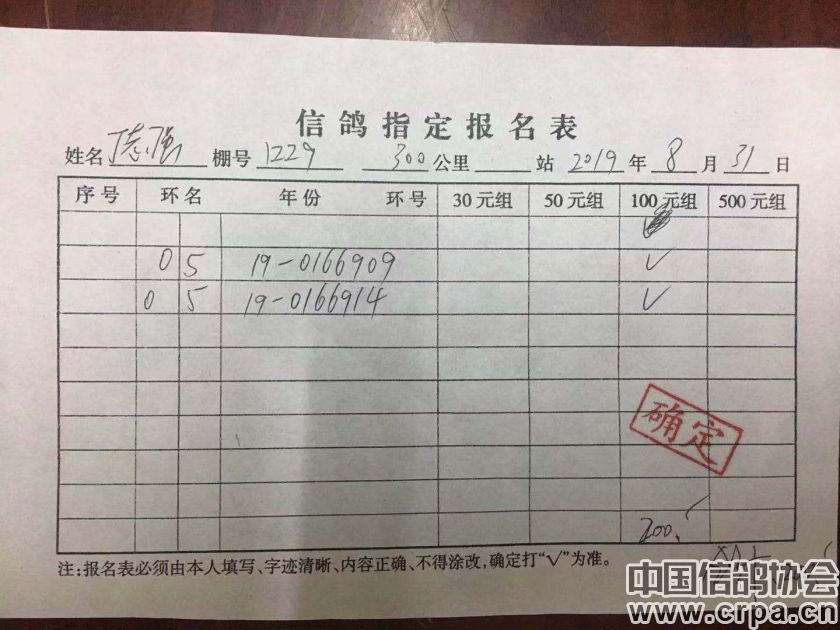 信鸽指定报名表
姓名 丁志强 棚号 1229 300 公里 站 2019 年 8 月 31 日
序号 环名 年份 环号 30元组 50元组 100元组 500元组
05 19-0166909 √
05 19-0166914 √
确定
200.
注:报名表必须由本人填写、字迹清晰、内容正确、不得涂改,确定打“√”为准。
中国信鸽协会
www.crpa.cn